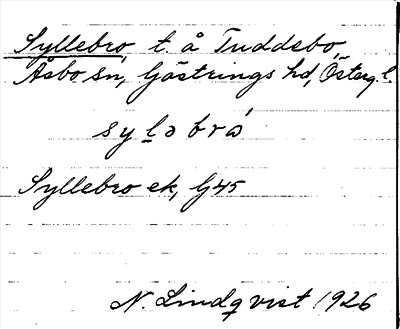 Syllebro, t. å Tuddebo,
Åsbo sn, Göstrings hd, Österg. l.
syləbrò
Syllebro ek, G45
N. Lindqvist 1926